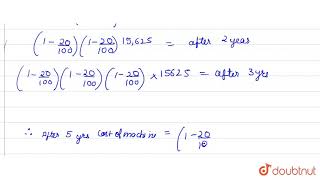 (1-20/100)(1-20/100) 15,625 = after 2 years
(1-20/100)(1-20/100)(1-20/100) × 15625 = after 3 yrs
∴ After 5 yrs Cost of machine = (1-20/10
doubtnut